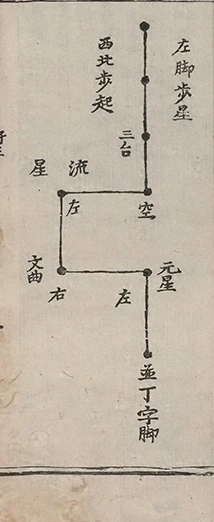 左脚步星
西北步起
三台
空
流
星
左
文曲
右
左
元星
並丁字脚